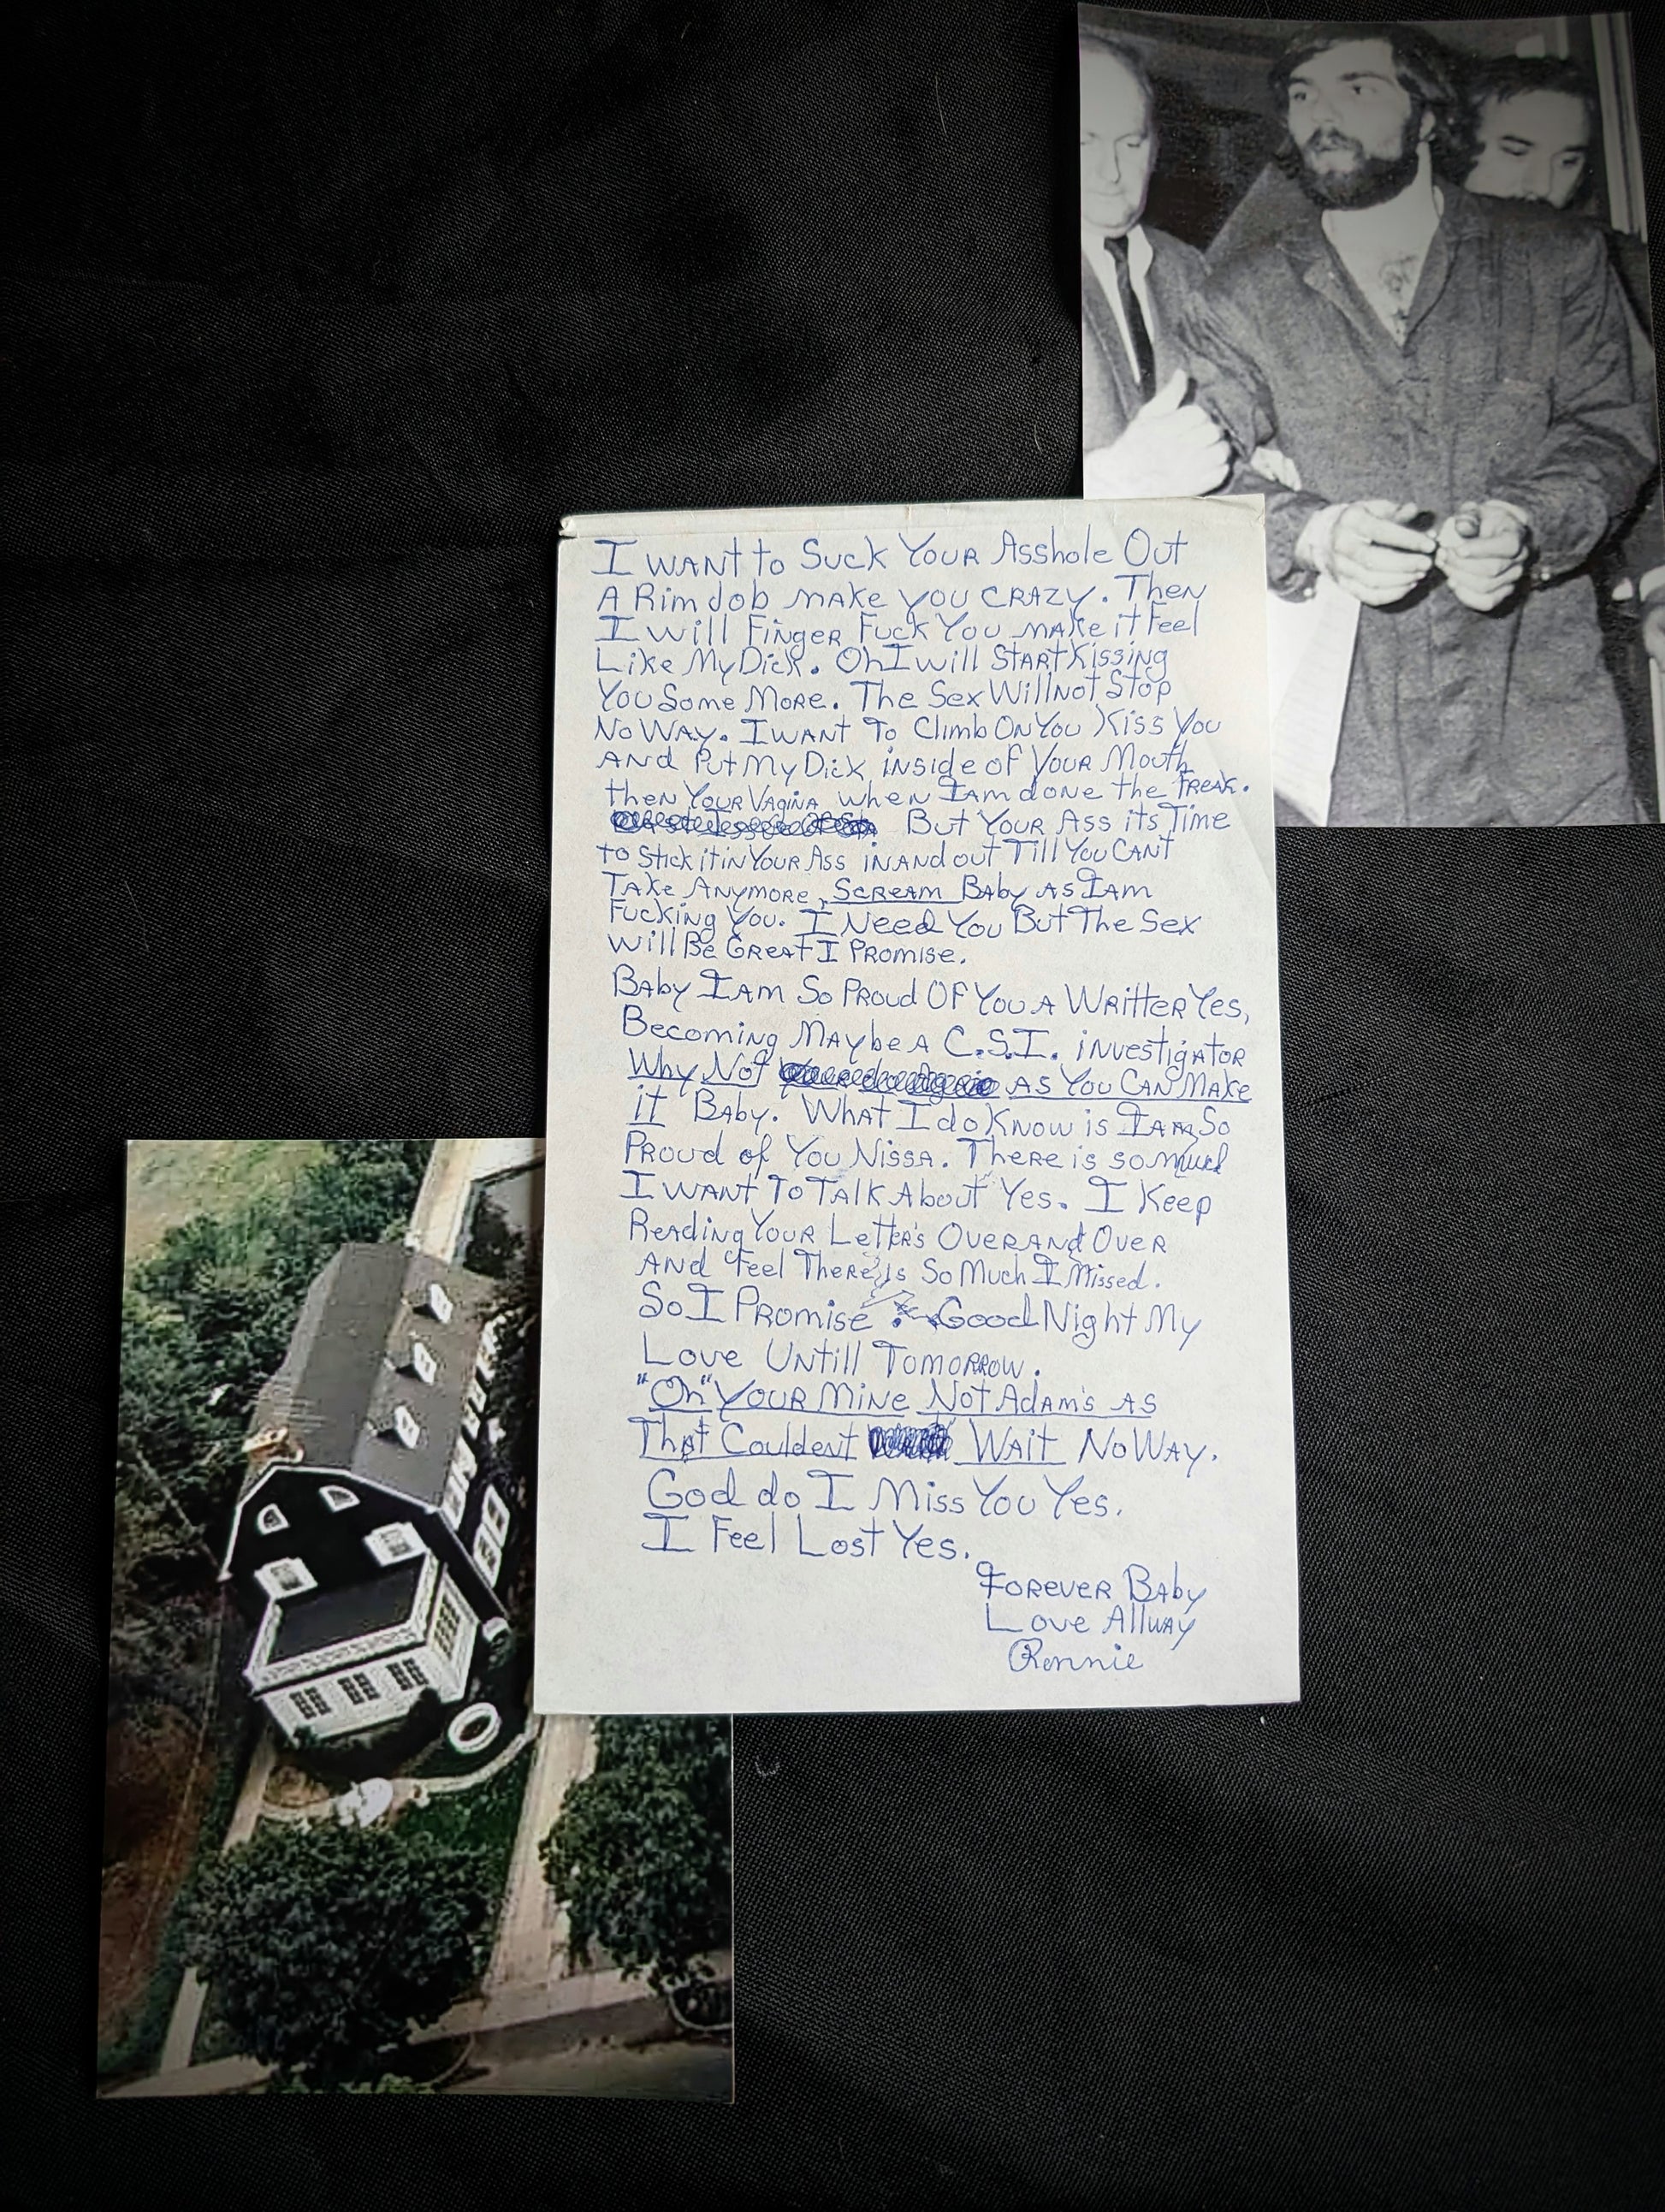 I WANT to Suck YOUR Asshole Out
A Rim Job MAKE YOU CRAZY. Then
I will Finger Fuck You MAKE it Feel
Like My Dick. Oh I will START Kissing
You Some More. The Sex Will Not Stop
No WAY. I WANT To Climb On You Kiss You
AND Put My Dick inside of Your Mouth
then Your VAgina when I Am done the FREAK.
But Your Ass its Time
to Stick it in Your Ass IN AND out Till You CANT
TAKE ANYMORE, SCREAM BAby AS I AM
Fucking You. I Need You But The Sex
will Be Great I Promise.
BAby I Am So Proud Of You A Writter Yes,
Becoming MAybe A C.S.I. investigator
Why Not AS You CAN MAKE
it Baby. What I do Know is I Am So
Proud of You Nissa. There is so much
I WANT To TALK About Yes. I Keep
Reading Your Letter's Over And Over
AND Feel There is So Much I Missed.
So I Promise. Good Night My
Love Untill Tomorrow.
"Oh" Your Mine Not Adam's As
That Couldent Wait No WAY.
God do I Miss You Yes.
I Feel Lost Yes.
Forever Baby
Love Allway
Ronnie